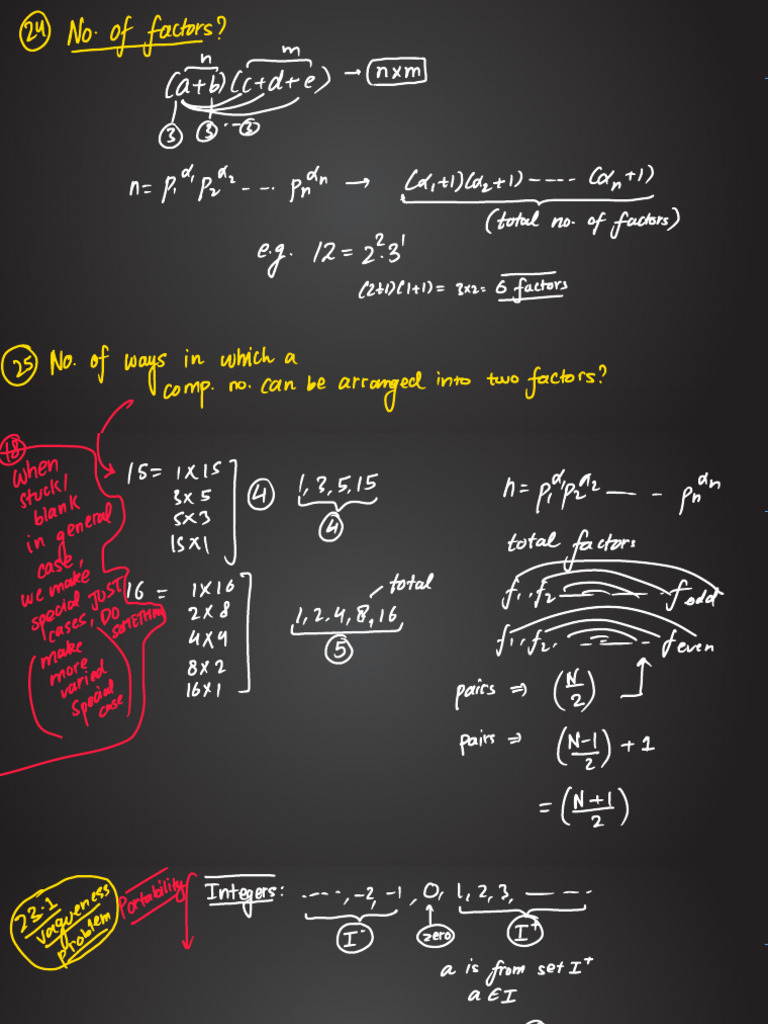 24 No. of factors?
n m
(a+b)(c+d+e) → n×m
3 3 -- 3
n = p₁^α₁ p₂^α₂ --.. pₙ^αₙ → (α₁+1)(α₂+1)----- (αₙ+1)
(total no. of factors)
e.g. 12 = 2².3¹
(2+1)(1+1) = 3x2 = 6 factors
25 No. of ways in which a
comp. no. can be arranged into two factors?
18
When
stuck/
blank
in general
case,
we make
special
cases,
JUST
DO
SOMETHING
(make
more
varied
special
case)
15 = 1x15
3x5
5x3
15x1
4
1, 3, 5, 15
4
16 = 1x16
2x8
4x4
8x2
16x1
total
1, 2, 4, 8, 16
5
n = p₁^α₁ p₂^α₂ — - - pₙ^αₙ
total factors
f₁, f₂ ---- f odd
f₁, f₂, ---- f even
pairs ⇒ (N/2)
pairs ⇒ ((N-1)/2) + 1
= ((N+1)/2)
23.1
vagueness
problem
Portability
Integers: ----, -2, -1, 0, 1, 2, 3, ———
I⁻ zero I⁺
a is from set I⁺
a ∈ I